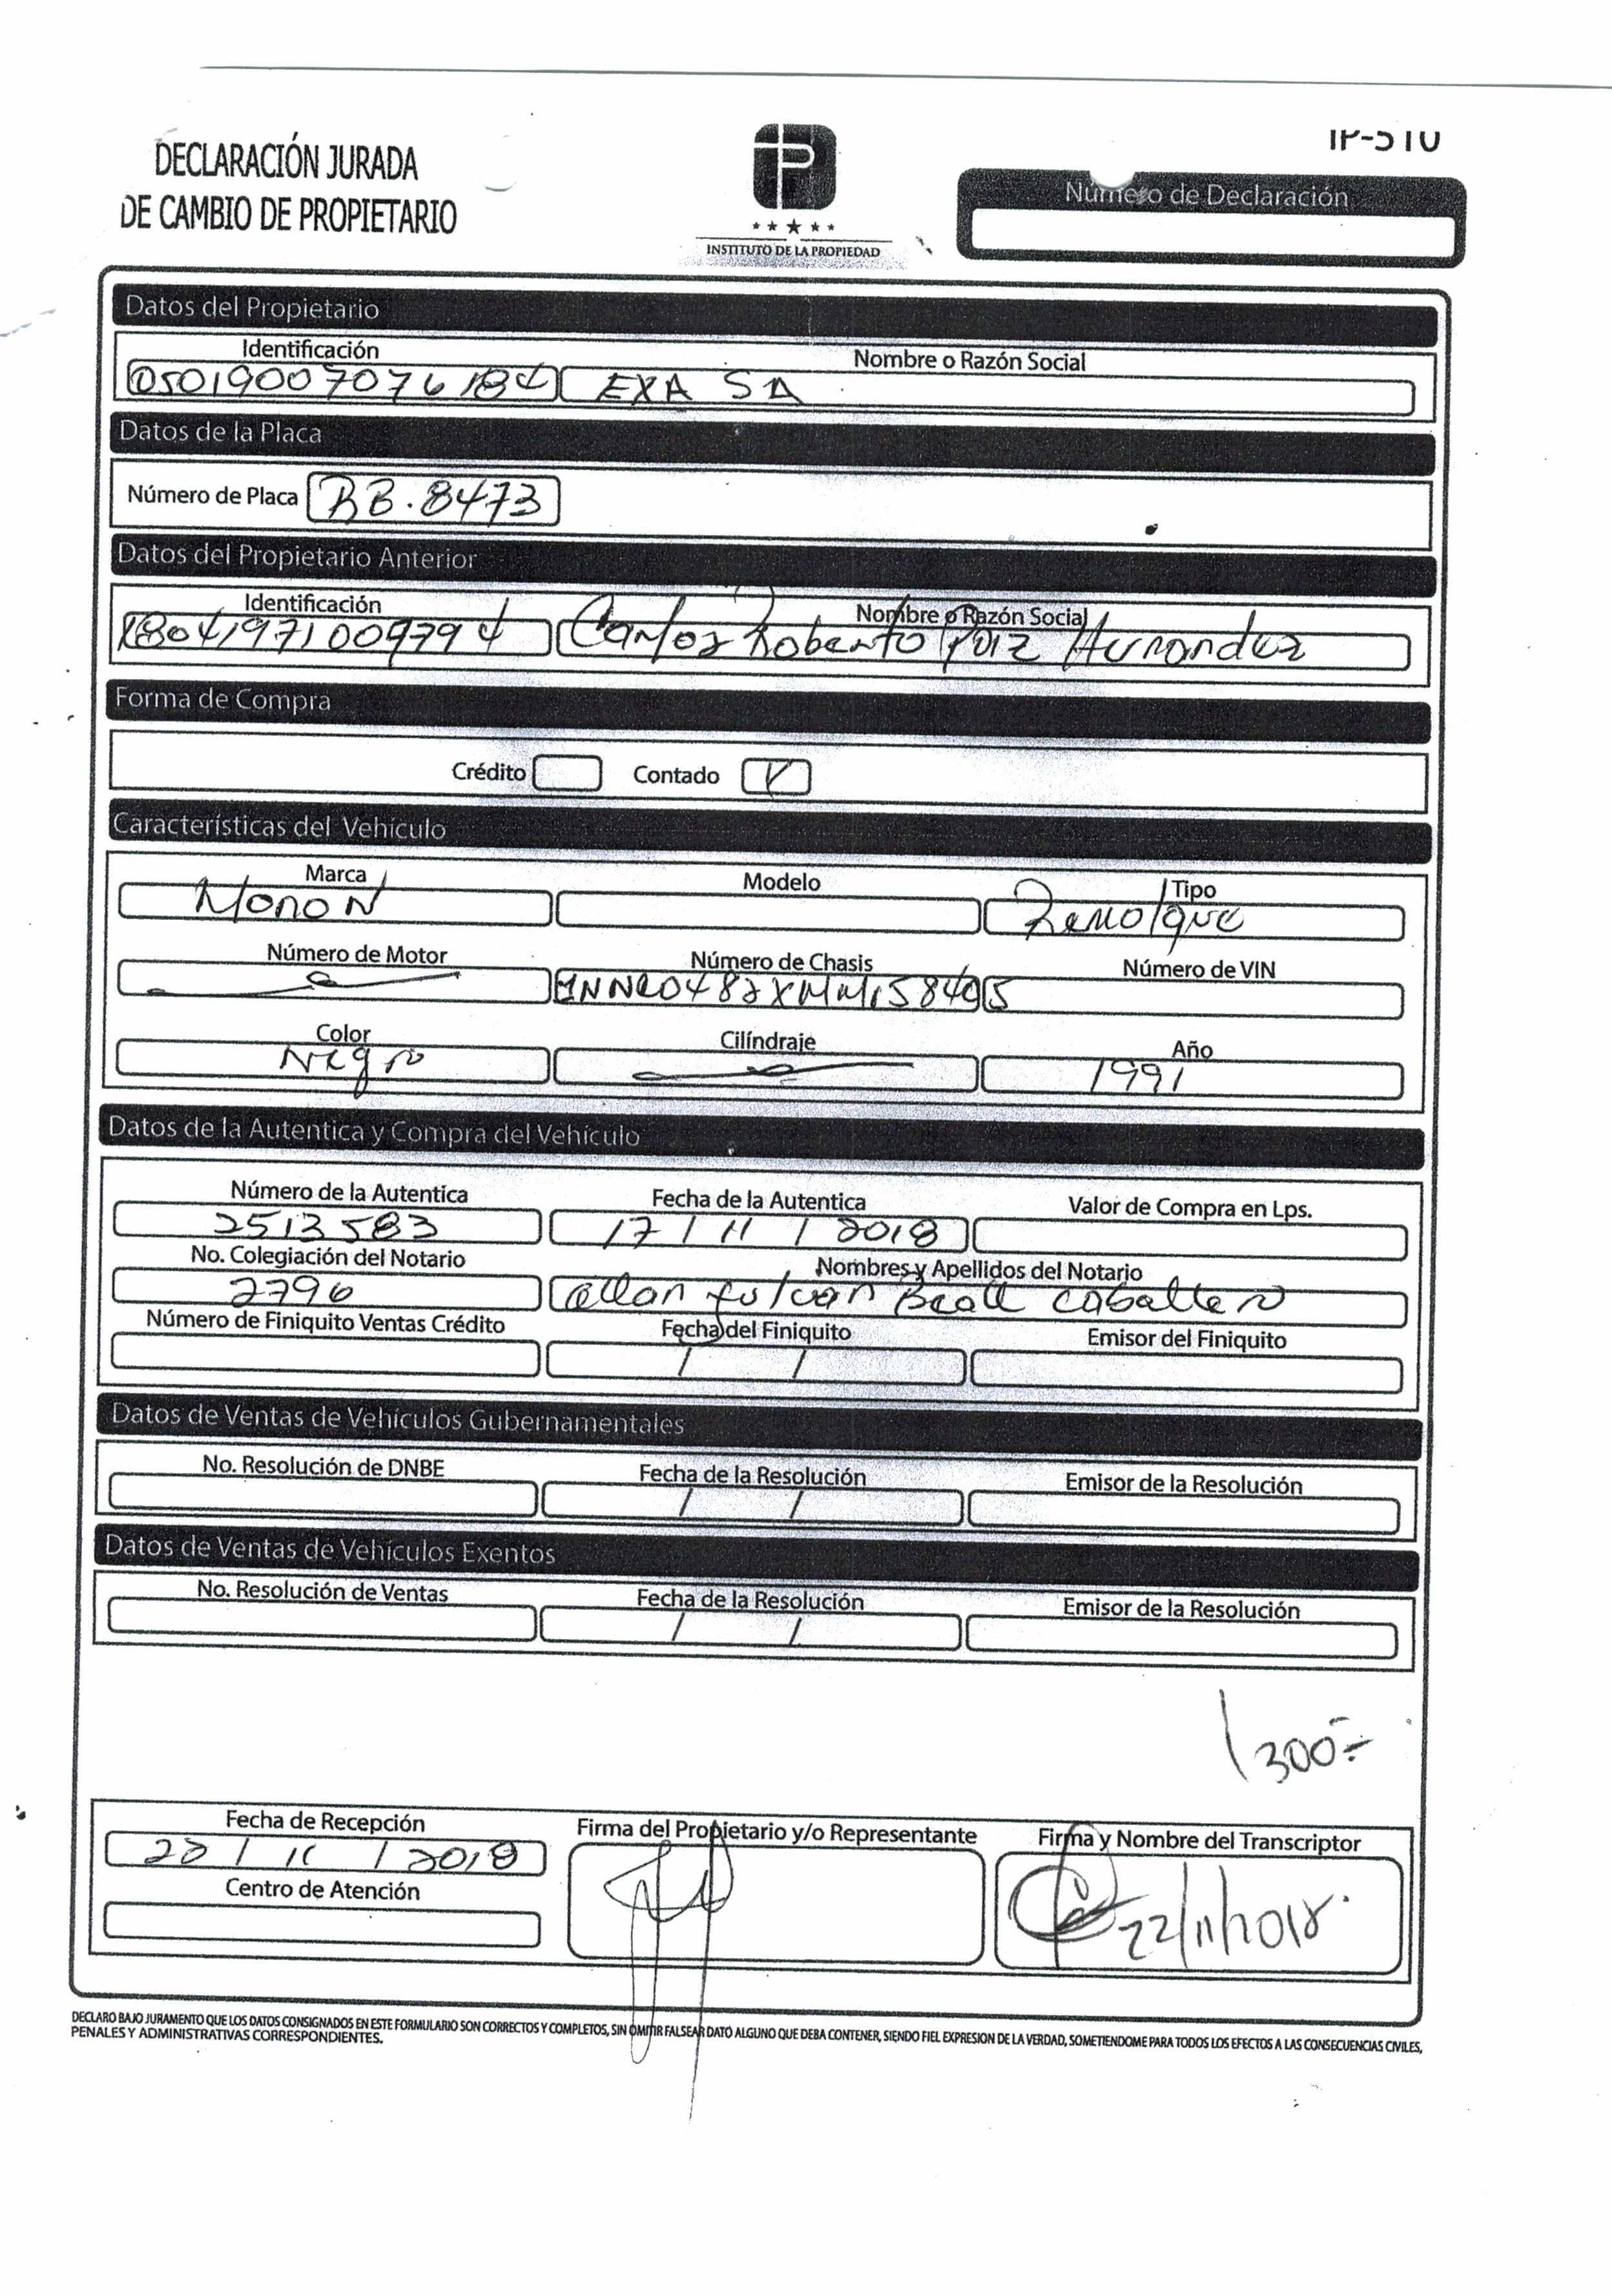 DECLARACIÓN JURADA
DE CAMBIO DE PROPIETARIO
INSTITUTO DE LA PROPIEDAD
IP-510
Número de Declaración
Datos del Propietario
Identificación Nombre o Razón Social
05019007076184 EXA SA
Datos de la Placa
Número de Placa RB.8473
Datos del Propietario Anterior
Identificación Nombre o Razón Social
1804197100979 4 Carlos Roberto Paiz Hernandez
Forma de Compra
Crédito Contado
Características del Vehículo
Marca Modelo Tipo
MonoN Remolque
Número de Motor Número de Chasis Número de VIN
Color Cilíndraje Año
Negro 1991
Datos de la Autentica y Compra del Vehículo
Número de la Autentica Fecha de la Autentica Valor de Compra en Lps.
2513583 17 / 11 / 2018
No. Colegiación del Notario Nombres y Apellidos del Notario
2796 allan caballero
Número de Finiquito Ventas Crédito Fecha del Finiquito Emisor del Finiquito
/ /
Datos de Ventas de Vehículos Gubernamentales
No. Resolución de DNBE Fecha de la Resolución Emisor de la Resolución
/ /
Datos de Ventas de Vehículos Exentos
No. Resolución de Ventas Fecha de la Resolución Emisor de la Resolución
/ /
300
Fecha de Recepción Firma del Propietario y/o Representante Firma y Nombre del Transcriptor
22 / 11 / 2018 22/11/2018
Centro de Atención
DECLARO BAJO JURAMENTO QUE LOS DATOS CONSIGNADOS EN ESTE FORMULARIO SON CORRECTOS Y COMPLETOS, SIN OMITIR FALSEAR DATO ALGUNO QUE DEBA CONTENER, SIENDO FIEL EXPRESION DE LA VERDAD, SOMETIENDOME PARA TODOS LOS EFECTOS A LAS CONSECUENCIAS CIVILES,
PENALES Y ADMINISTRATIVAS CORRESPONDIENTES.